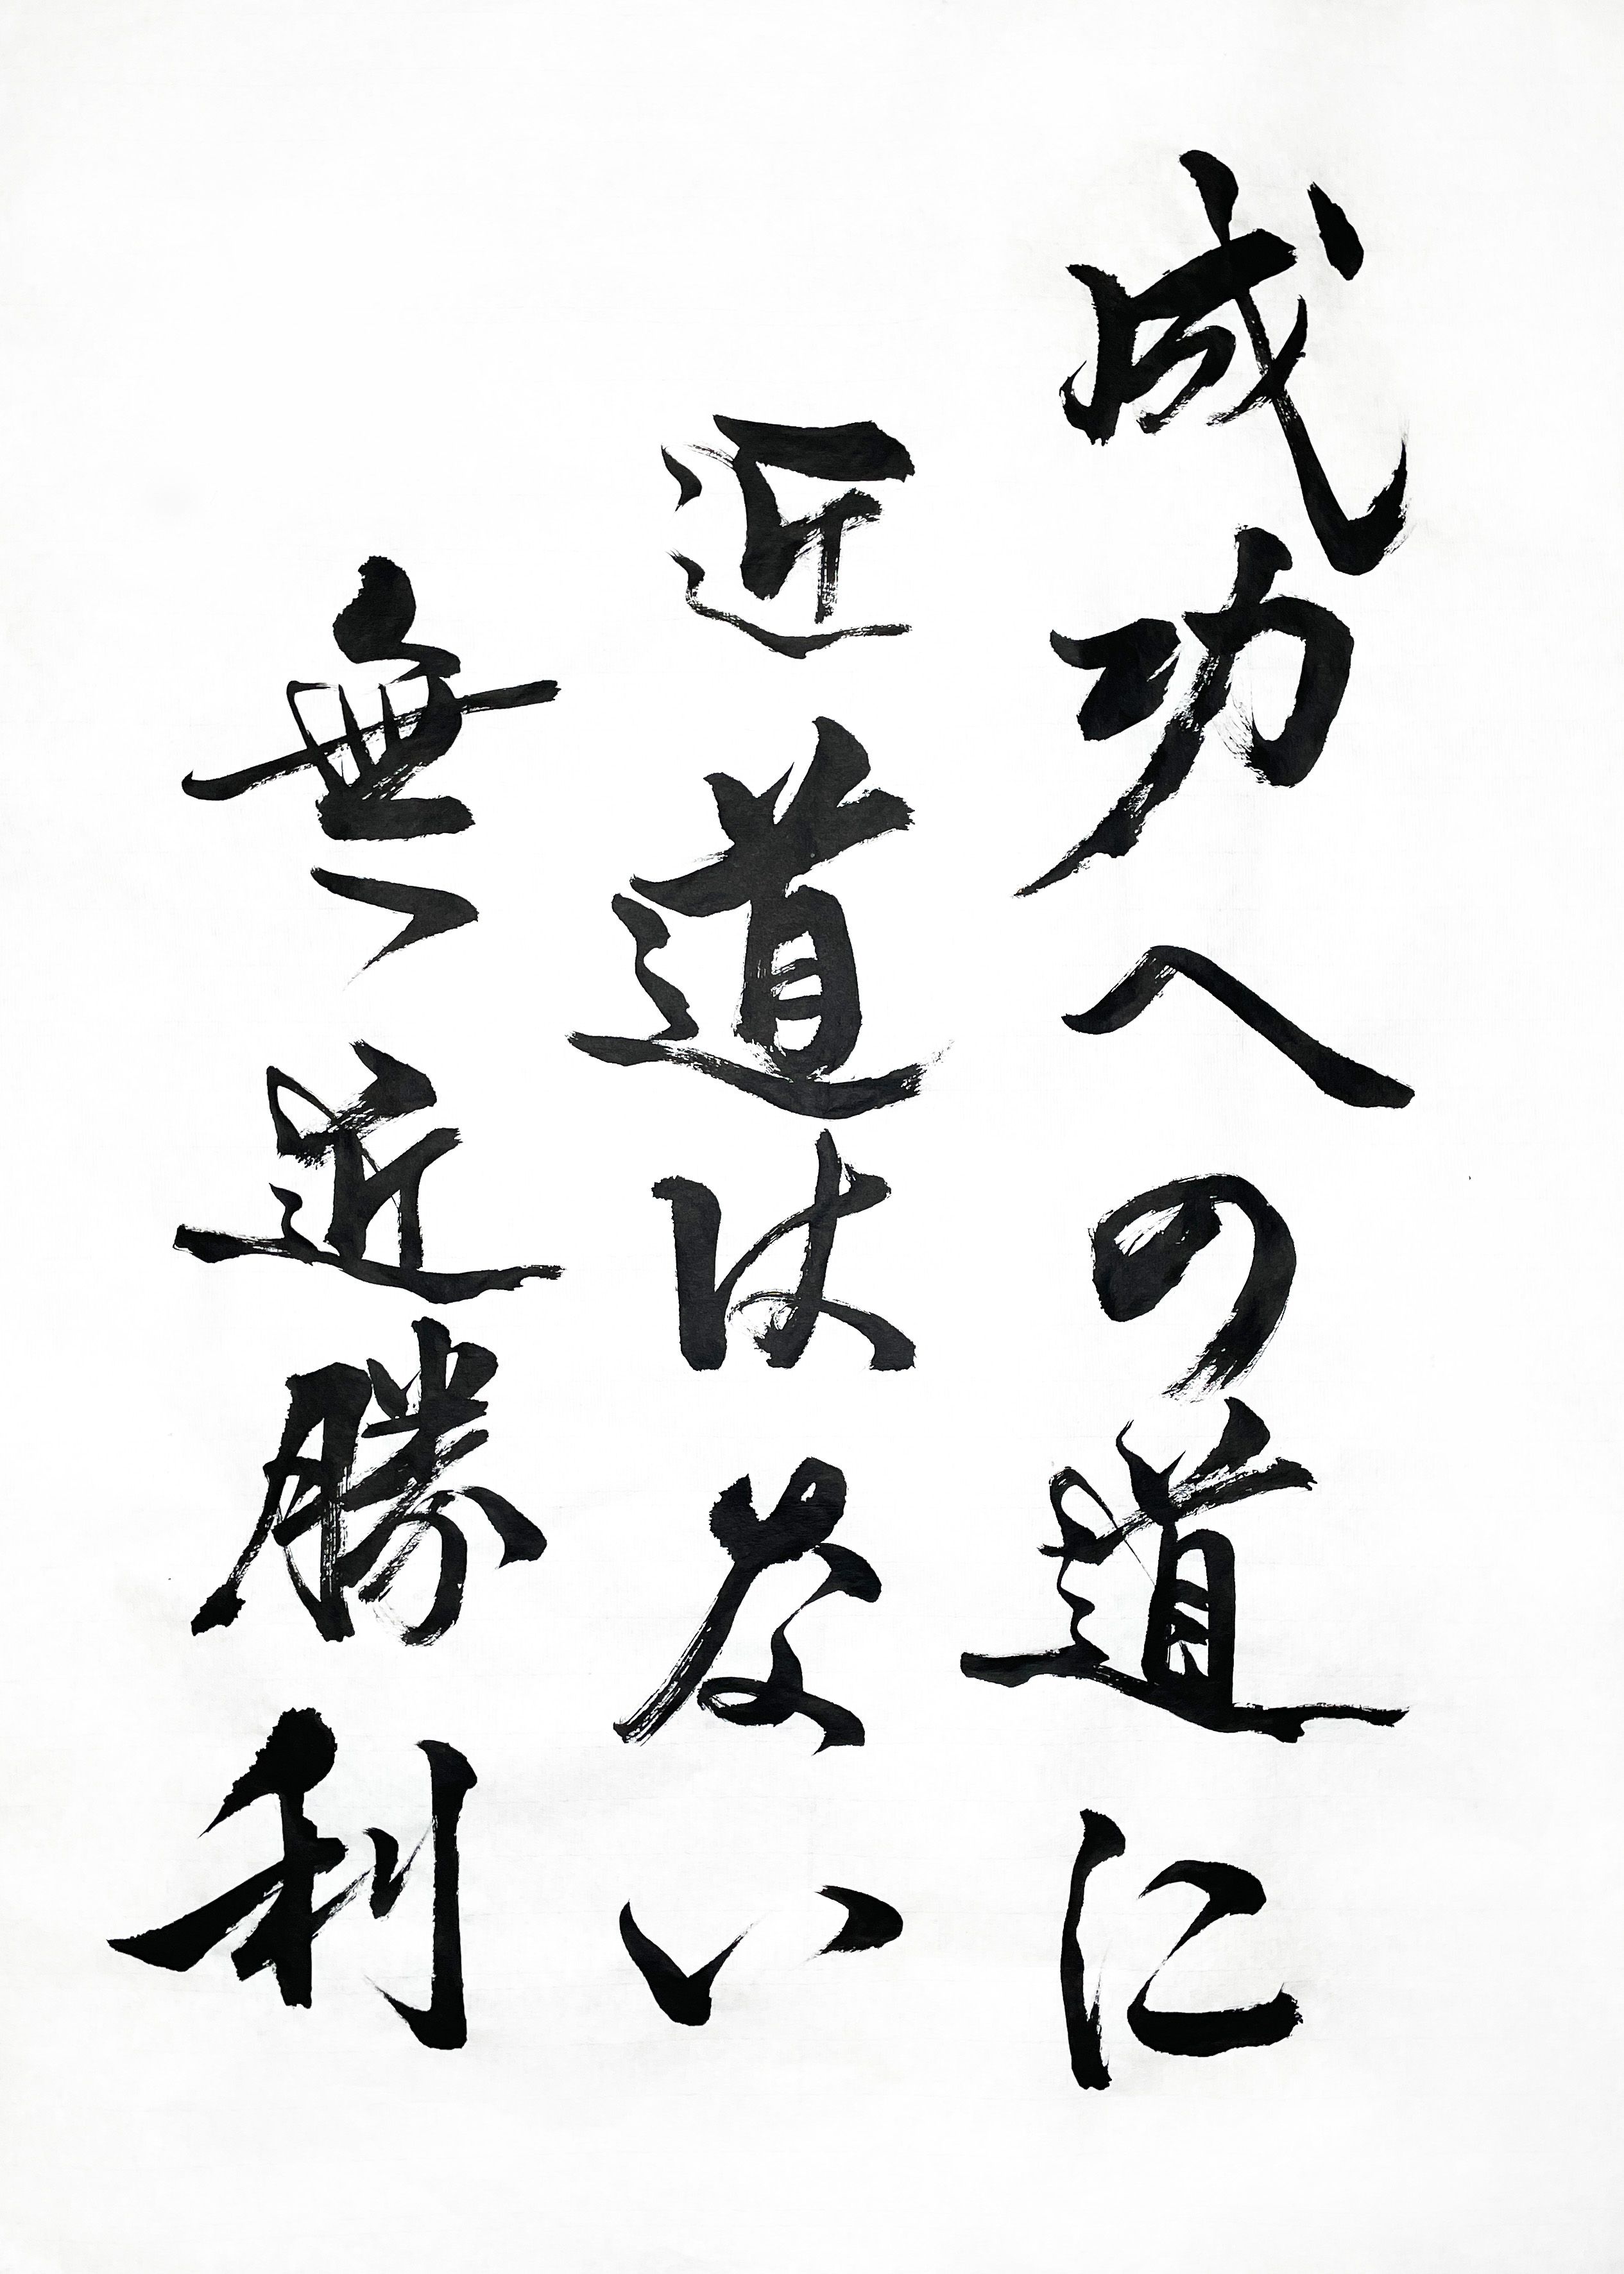 成功への道に
近道はない
無近勝利